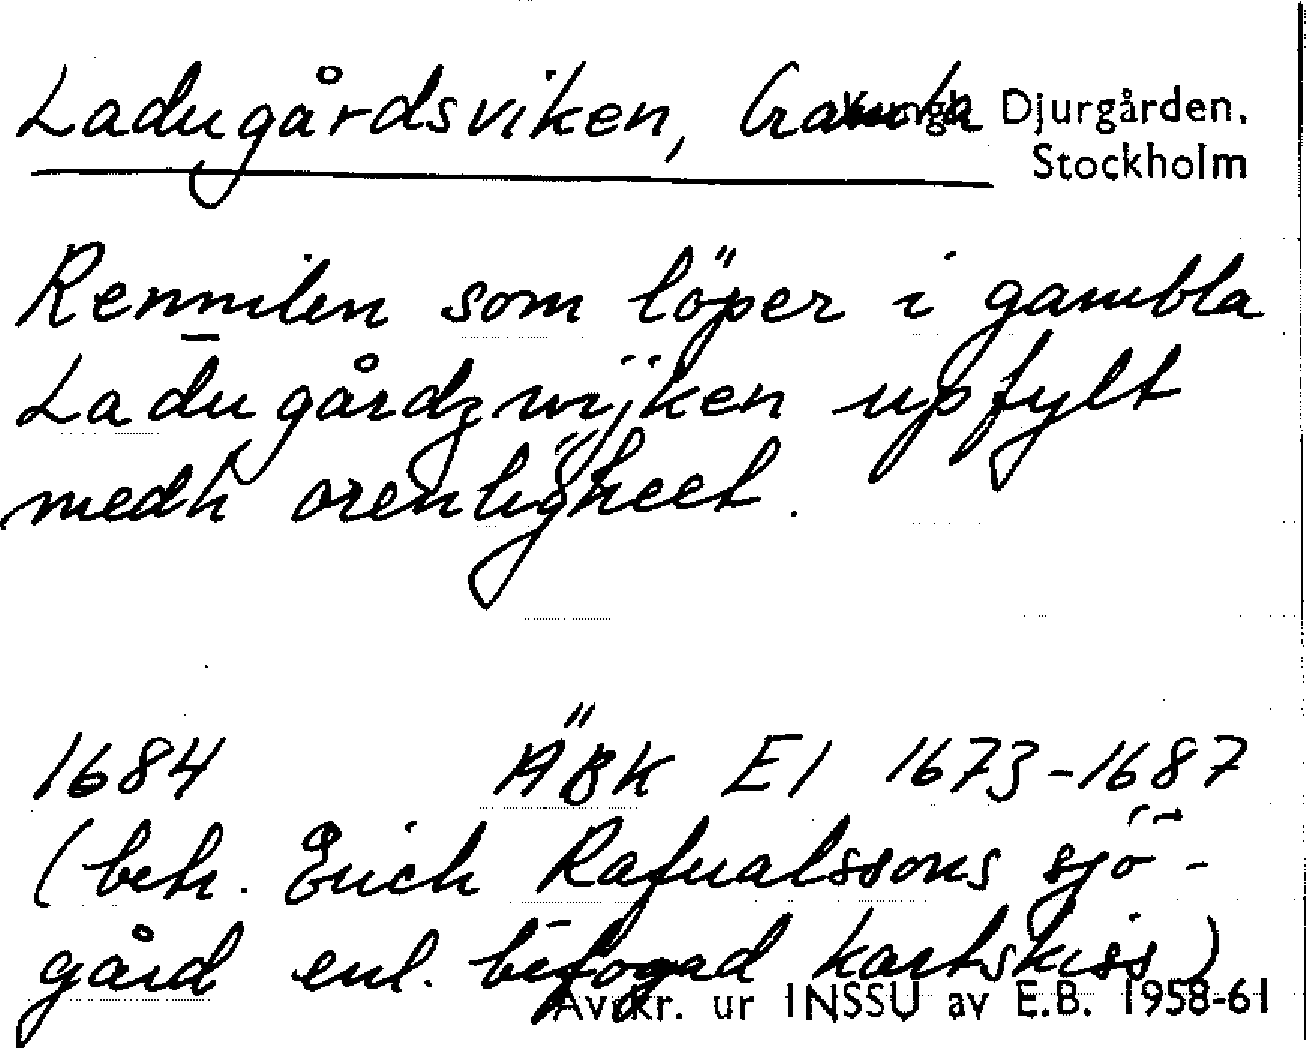 Ladugårdsviken, Gamla Kungl. Djurgården.
Stockholm
Rennilen som löper i gambla
Ladugårdzwijken upfylt
medh orenligheet.
1684 ÄBK E1 1673-1687
(beh. Erich Rafualssons sjö-
gård enl. bifogad kartskiss)
Avskr. ur INSSU av E.B. 1958-61